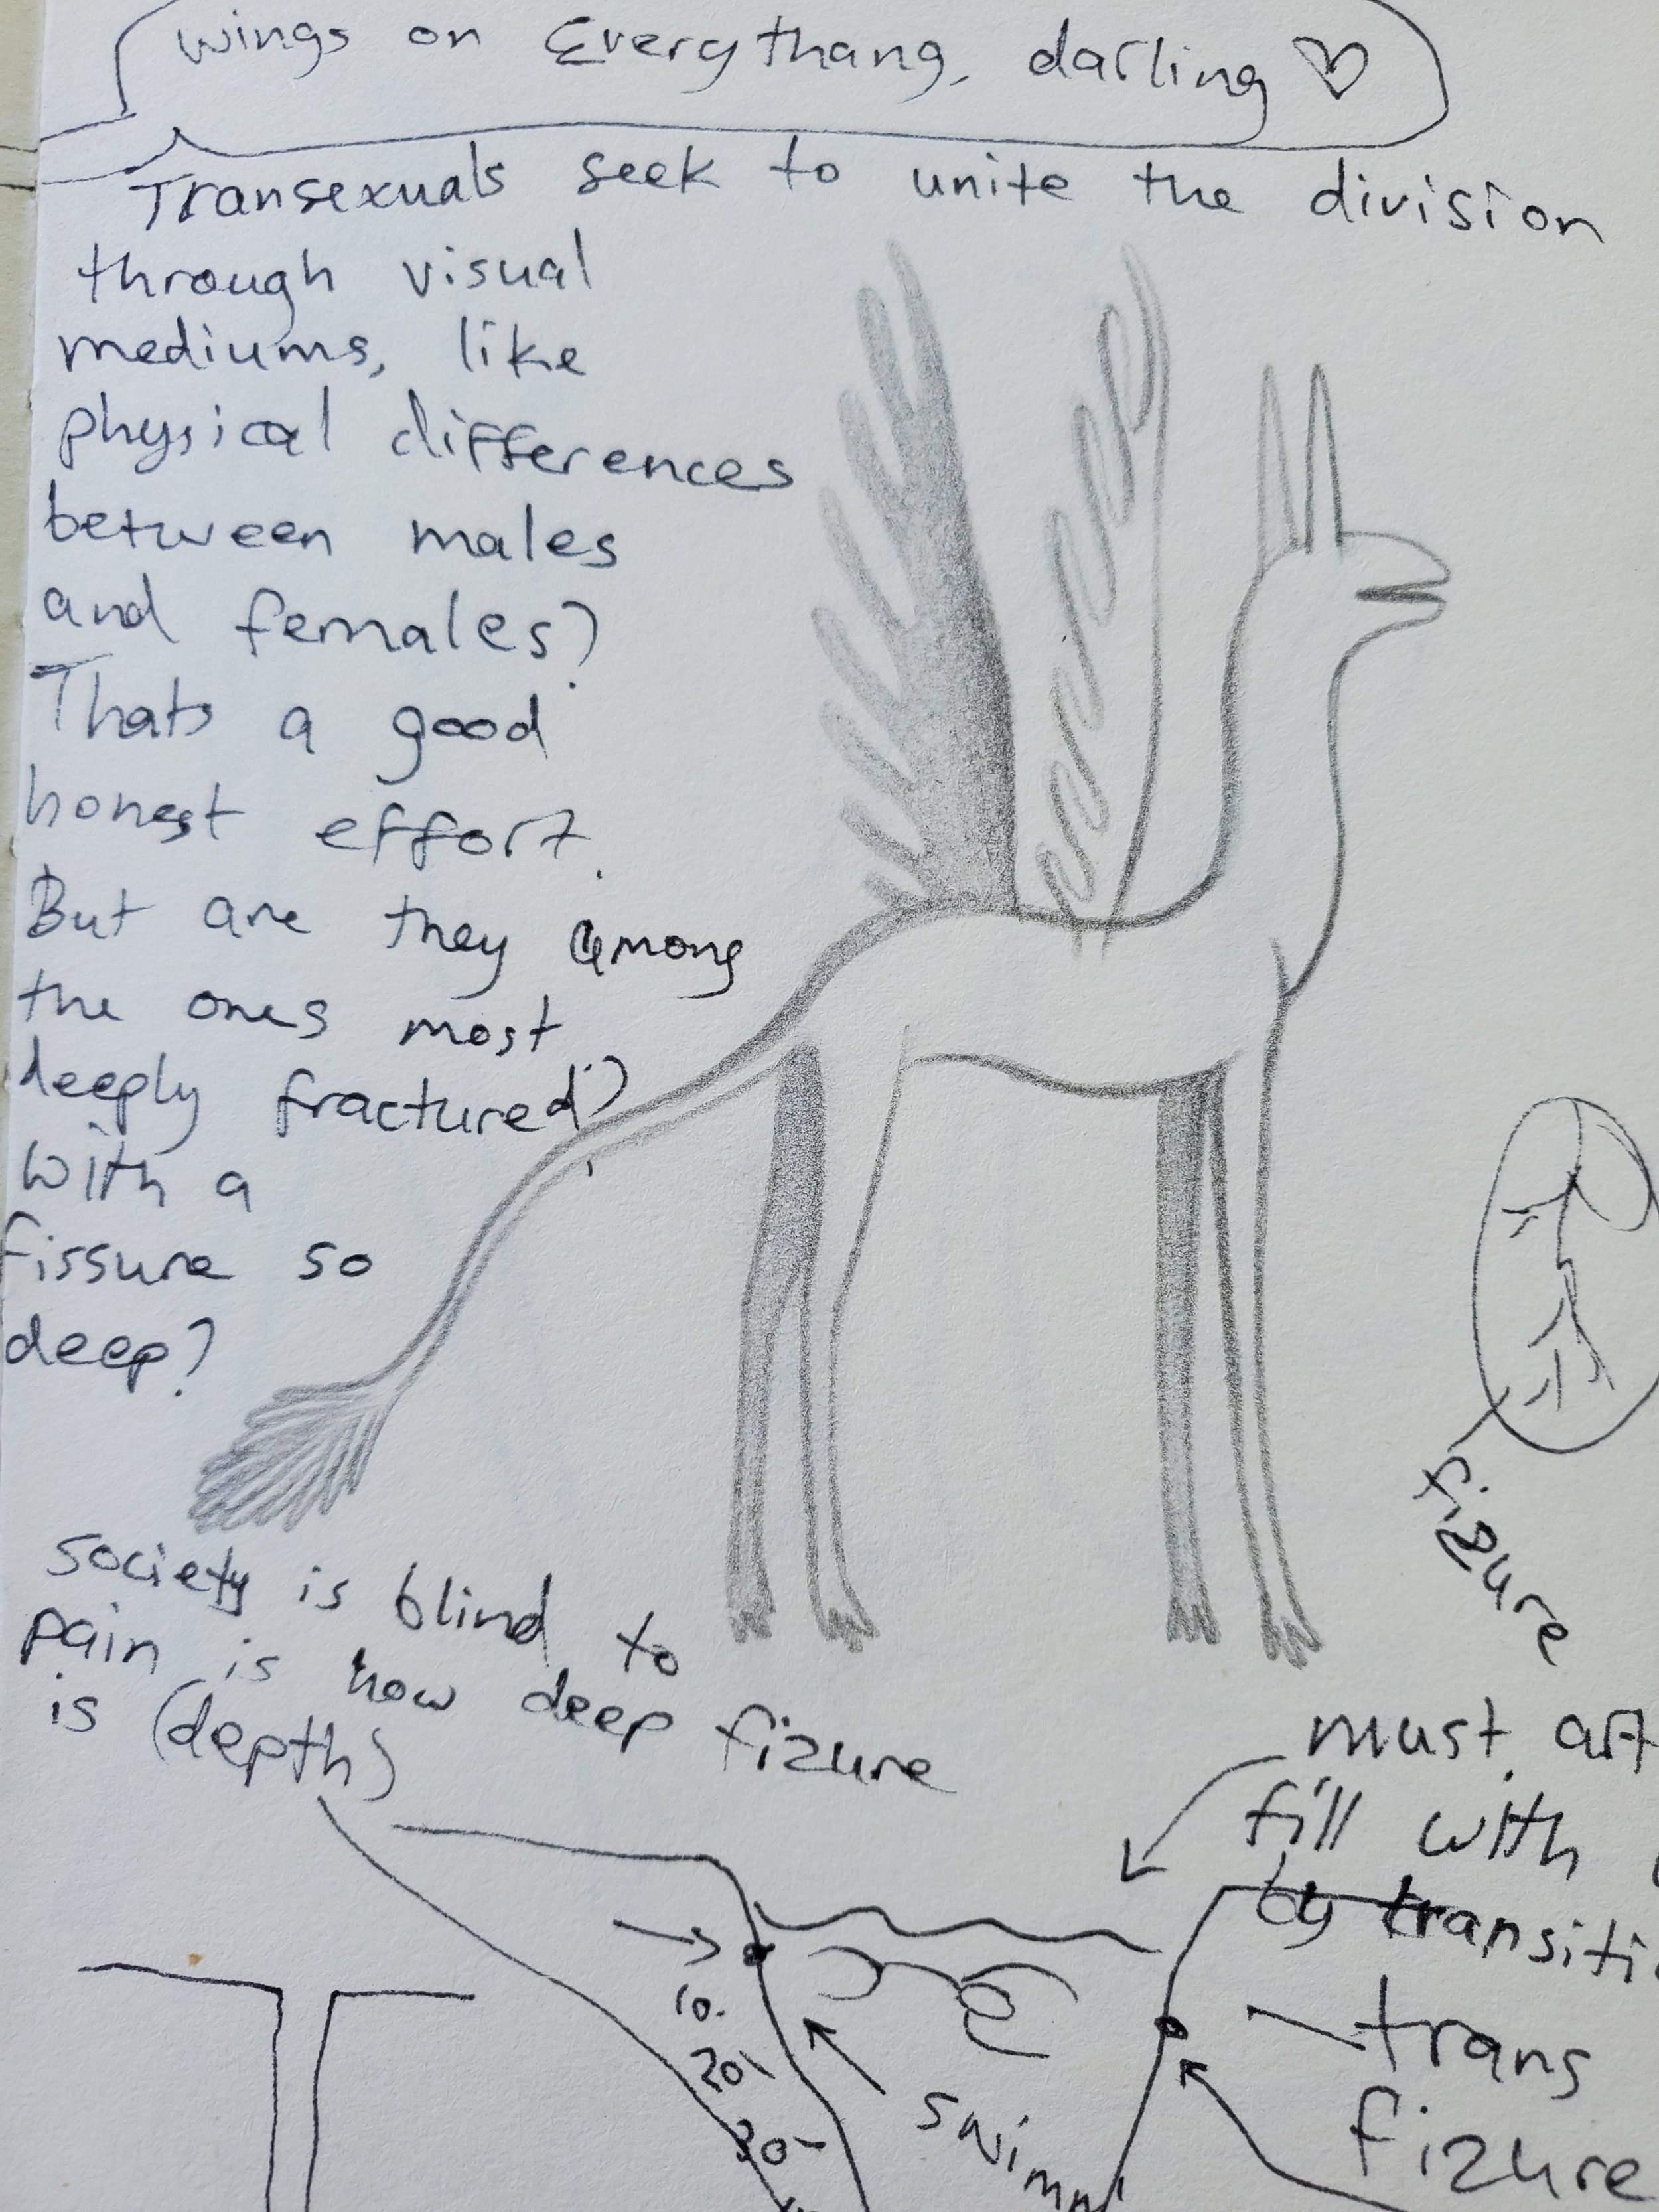 wings on Everythang, darling ♡
Transexuals seek to unite the division
through visual
mediums, like
physical differences
between males
and females?
Thats a good
honest effort.
But are they among
the ones most
deeply fractured?
With a
fissure so
deep?
fizure
society is blind to
pain is how deep fizure
is (depth)
must
fill with
by
trans
fizure
10.
20-
30-